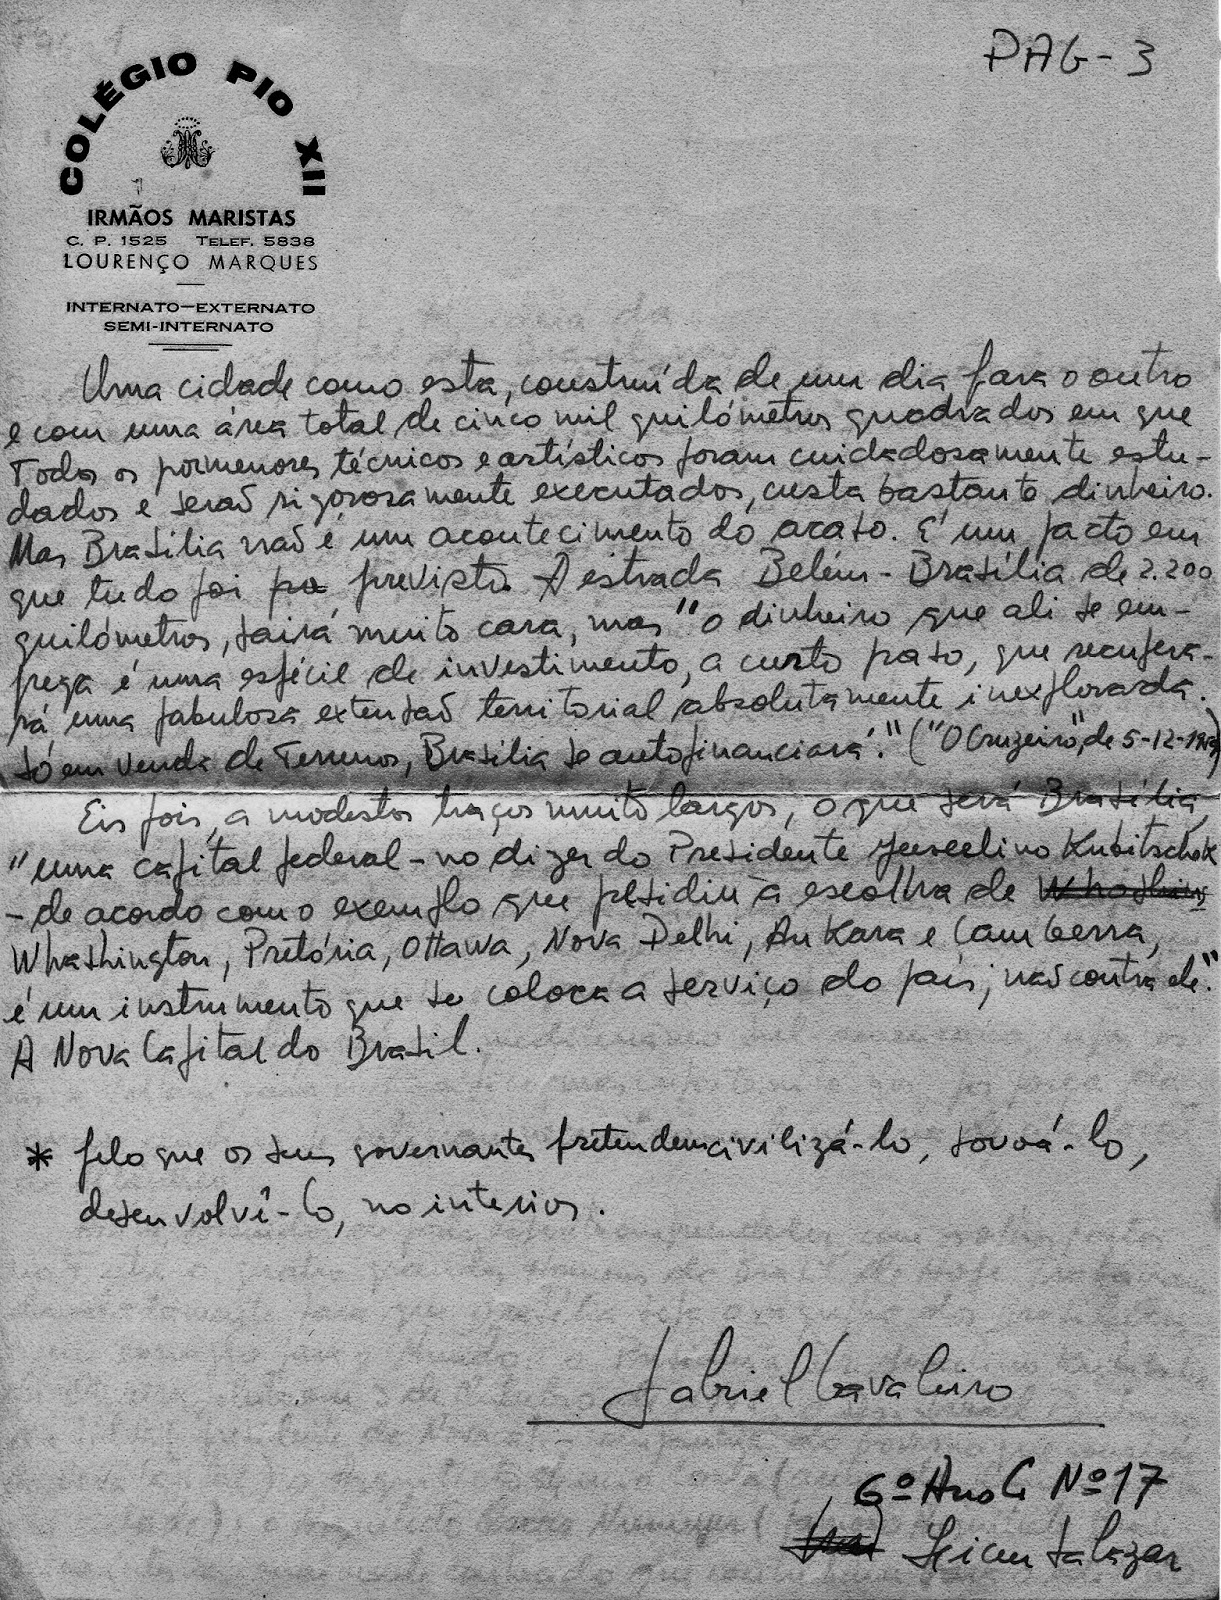 PAG-3
COLÉGIO PIO XII
IRMÃOS MARISTAS
C. P. 1525 TELEF. 5838
LOURENÇO MARQUES
INTERNATO-EXTERNATO
SEMI-INTERNATO
Uma cidade como esta, construída de um dia para o outro
e com uma área total de cinco mil quilómetros quadrados em que
Todos os pormenores técnicos e artísticos foram cuidadosamente estu-
dados e serão rigorosamente executados, custa bastante dinheiro.
Mas Brasília não é um acontecimento do acaso. É um facto em
que tudo foi previsto. A estrada Belém-Brasília de 2.200
quilómetros, sairá muito cara, mas "o dinheiro que ali se em-
prega é uma espécie de investimento, a curto prazo, que recupera-
rá uma fabulosa extensão territorial absolutamente inexplorada.
Só em venda de Terrenos, Brasília se autofinanciará." ("O Cruzeiro", de 5-12-
Eis pois, a modestos traços muito largos, o que será Brasília,
"uma capital federal - no dizer do Presidente Juscelino Kubitschek
- de acordo com o exemplo que presidiu à escolha de
Whashington, Pretória, Ottawa, Nova Delhi, Ankara e Camberra,
é um instrumento que se coloca a serviço do país, não contra ele."
A Nova Capital do Brasil.
* pelo que os seus governantes pretendem civilizá-lo, povoá-lo,
desenvolvê-lo, no interior.
Gabriel Cavaleiro
6º Ano C Nº 17
Liceu Salazar